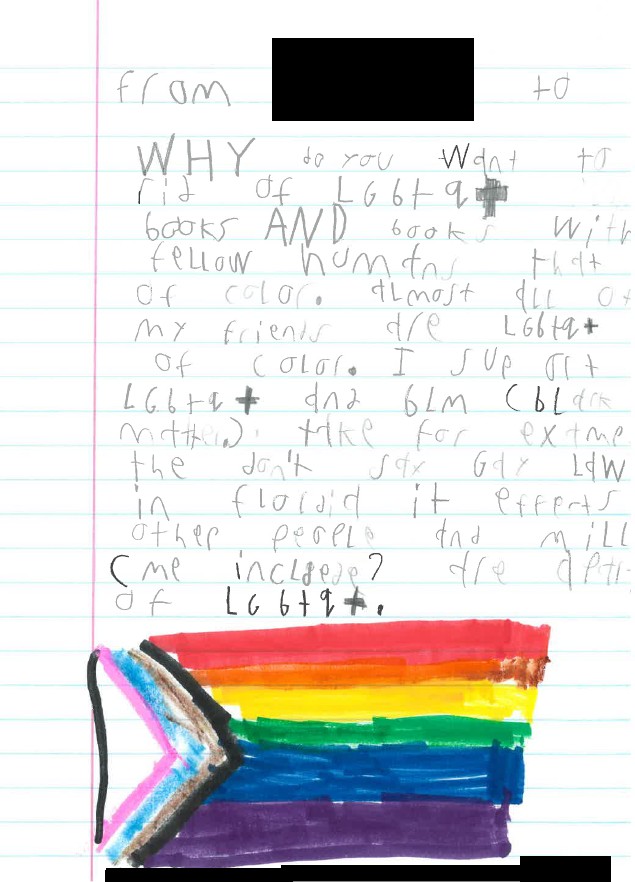 from to
WHY do you Want to
rid of LGbtq+
books AND books With
fellow humans that
of color. almost all of
my friends are LGbtq+
of color. I suport
LGbtq+ and bLm (bLack
matter.) take for exame
the don't say Gay LaW
in floraid it effects
other people and mill
(me inclede?) are a part
of LGbtq+.